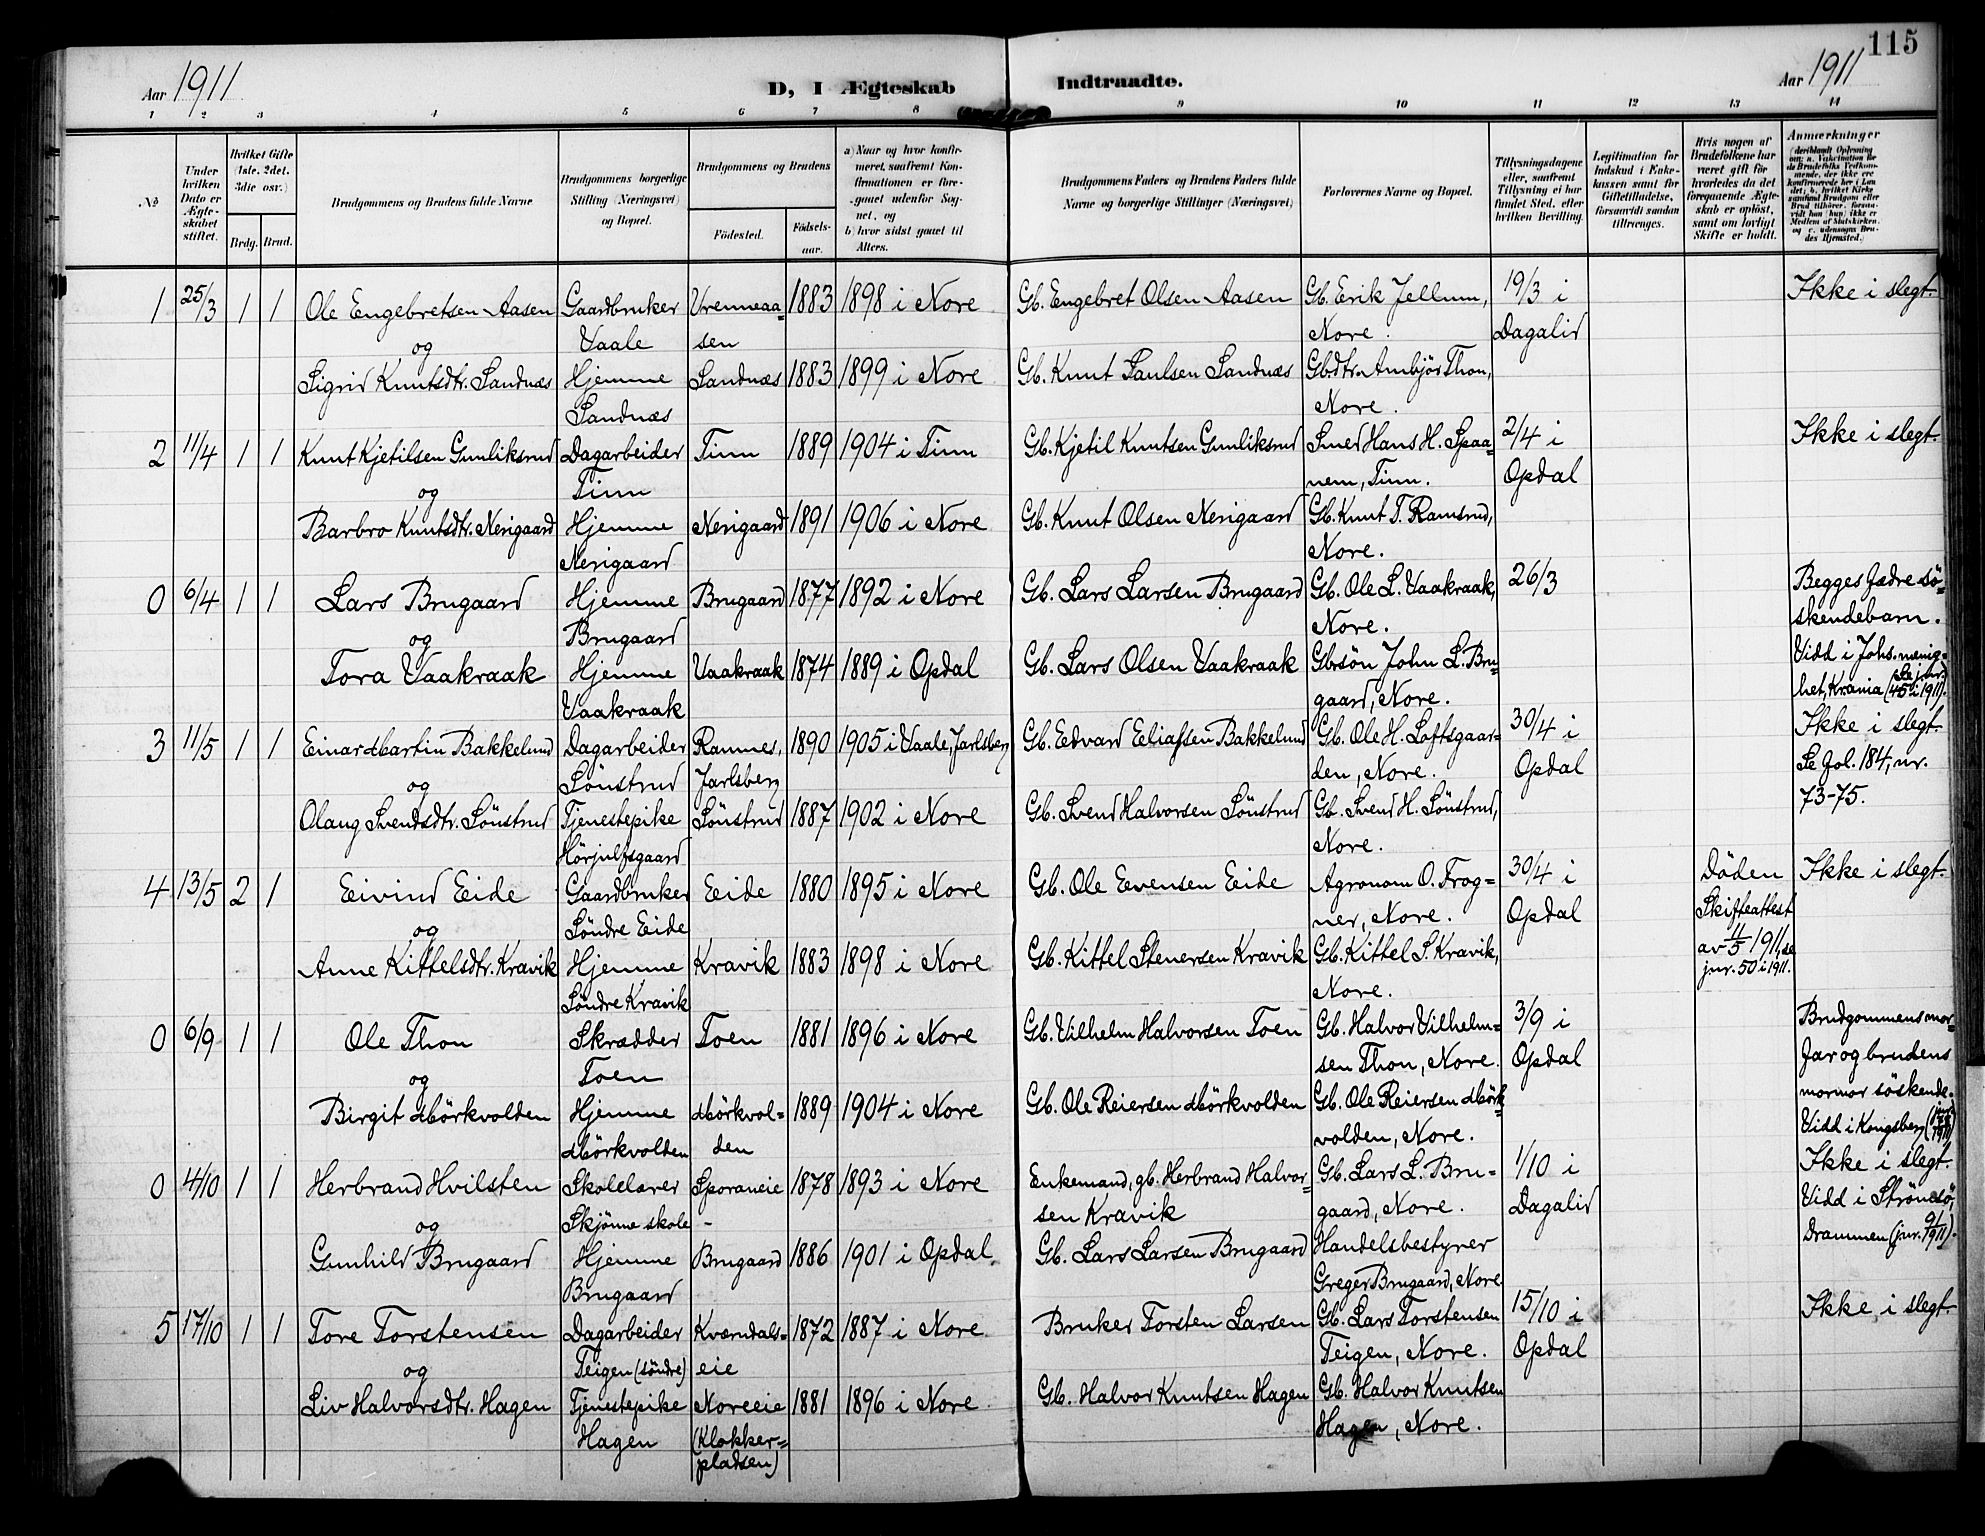 115
Aar 1911
D, I Ægteskab Indtraadte.
Aar 1911
1 2 3 4 5 6 7 8 9 10 11 12 13 14
No
Under hvilken Dato er Ægteskabet stiftet.
Hvilket Gifte (1ste. 2det. 3die osv.)
Brdg. Brud.
Brudgommens og Brudens fulde Navne
Brudgommens borgerlige Stilling (Næringsvei) og Bopæl.
Brudgommens og Brudens
Fødested.
Fødselsaar.
a) Naar og hvor konfirmeret, saafremt Konfirmationen er foregaaet udenfor Sognet, og
b) hvor sidst gaaet til Alters.
Brudgommens Faders og Brudens Faders fulde Navne og borgerlige Stillinger (Næringsvei)
Forlovernes Navne og Bopæl.
Tillysningsdagene eller, saafremt Tillysning ei har fundet Sted, efter hvilken Bevilling.
Legitimation for Indskud i Enkekassen samt for Giftetilladelse, forsaavidt saadan tiltrænges.
Hvis nogen af Brudefolkene har været gift før hvorledes da det foregaaende Ægteskab er opløst, samt om lovligt Skifte er holdt.
Anmærkninger
1 25/3 1 1 Ole Engebretsen Aasen Gaardbruker Vrenneaa- 1883 1898 i Nore Gb. Engebret Olsen Aasen Gb. Erik Jellum, 19/3 i Ikke i slegt.
og Vaale sen Nore. Dagalid
Sigrid Knutsdtr. Sandnæs Hjemme Sandnæs 1883 1899 i Nore Gb. Knut Paulsen Sandnæs Gbdtr. Ambjör Thon,
Sandnæs Nore.
2 11/4 1 1 Knut Kjetilsen Gunliksrud Dagarbeider Tinn 1889 1904 i Tinn Gb. Kjetil Knutsen Gunliksrud Smed Hans H. Spaa- 2/4 i Ikke i slegt.
og Tinn nem, Tinn. Opdal
Barbro Knutsdtr. Nerigaard Hjemme Nerigaard 1891 1906 i Nore Gb. Knut Olsen Nerigaard Gb. Knut T. Ramsrud,
Nerigaard Nore.
0 6/4 1 1 Lars Brugaard Hjemme Brugaard 1877 1892 i Nore Gb. Lars Larsen Brugaard Gb. Ole L. Vaakraak, 26/3 Begges fædre sö-
og Brugaard Nore. skendebarn.
Tora Vaakraak Hjemme Vaakraak 1874 1889 i Opdal Gb. Lars Olsen Vaakraak Gbrsön John L. Bru- Vidd i Johs. menig-
Vaakraak gaard, Nore. het, Krania (Se jnr. 45 i 1911).
3 11/5 1 1 Einar Martin Bakkelund Dagarbeider Ramnes, 1890 1905 i Vaale, Jarlsberg Gb. Edvard Eliassen Bakkelund Gb. Ole H. Loftsgaar- 30/4 i Ikke i slegt.
og Sönstrud Jarlsberg den, Nore. Opdal Se fol. 184, nr.
Olaug Svendsdtr. Sönstrud Tjenestepike Sönstrud 1887 1902 i Nore Gb. Svend Halvorsen Sönstrud Gb. Svend H. Sönstrud, 73-75.
Hörjulfsgaard Nore.
4 13/5 2 1 Eivind Eide Gaardbruker Eide 1880 1895 i Nore Gb. Ole Evensen Eide Agronom O. Frog- 30/4 i Döden Ikke i slegt.
og Söndre Eide ner, Nore. Opdal Skifteattest
Anne Kittelsdtr. Kravik Hjemme Kravik 1883 1898 i Nore Gb. Kittel Stenersen Kravik Gb. Kittel S. Kravik, av 4/5 1911, se
Söndre Kravik Nore. jnr. 50 i 1911.
0 6/9 1 1 Ole Thon Skrædder Toen 1881 1896 i Nore Gb. Vilhelm Halvorsen Toen Gb. Halvor Vilhelm- 3/9 i Brudgommens mor-
og Toen sen Thon, Nore. Opdal far og brudens
Birgit Mörkvolden Hjemme Mörkvol- 1889 1904 i Nore Gb. Ole Reiersen Mörkvolden Gb. Ole Reiersen Mörk- mormor söskende.
Mörkvolden den volden, Nore. Vidd i Kongsberg
0 4/10 1 1 Herbrand Hvilsten Skolelærer Sporaneie 1878 1893 i Nore Enkemand, gb. Herbrand Halvor- Gb. Lars L. Bru- 1/10 i Ikke i slegt.
og Skjönne skole - sen Kravik gaard, Nore. Dagalid Vidd i Strömsö,
Gunhild Brugaard Hjemme Brugaard 1886 1901 i Opdal Gb. Lars Larsen Brugaard Handelsbestyrer Drammen (jnr. 91/1911).
Brugaard Greger Brugaard, Nore.
5 17/10 1 1 Tore Torstensen Dagarbeider Kværndals- 1872 1887 i Nore Bruker Torsten Larsen Gb. Lars Torstensen 15/10 i Ikke i slegt.
og Teigen (söndre) eie Teigen, Nore. Opdal
Liv Halvorsdtr. Hagen Tjenestepike Noreeie 1881 1896 i Nore Gb. Halvor Knutsen Hagen Gb. Halvor Knutsen
Hagen (Klokker- Hagen, Nore.
pladsen)